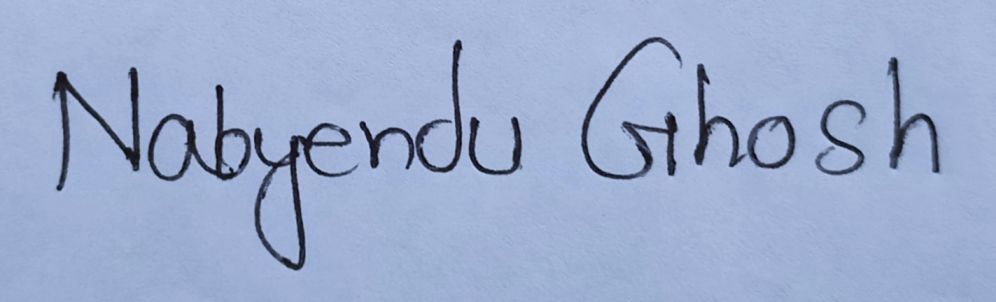 Nabyendu Ghosh